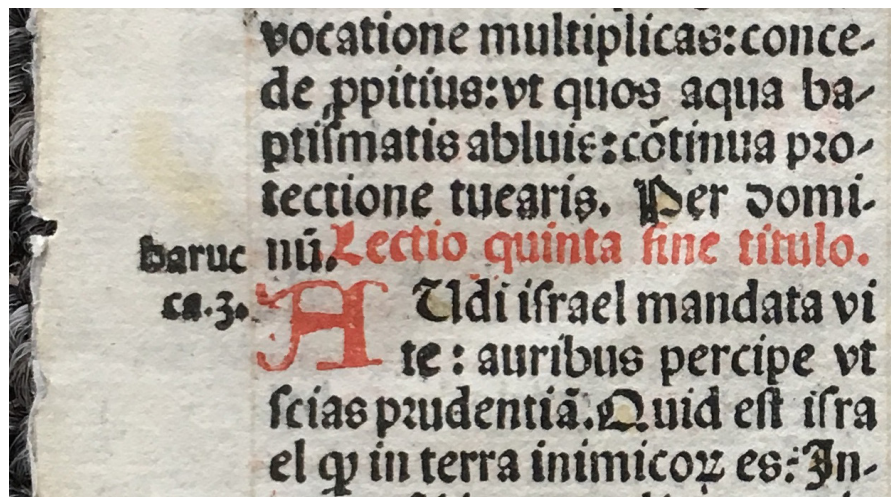 vocatione multiplicas: conce-
de ꝓpitius: vt quos aqua ba-
ptiſmatis abluis: cōtinua pro-
tectione tuearis. Per domi-
nū. Lectio quinta ſine titulo.
baruc
ca. 3.
AUdi iſrael mandata vi
te: auribus percipe vt
ſcias prudentiā. Quid eſt iſra
el ꝙ in terra inimicoꝝ es: In-